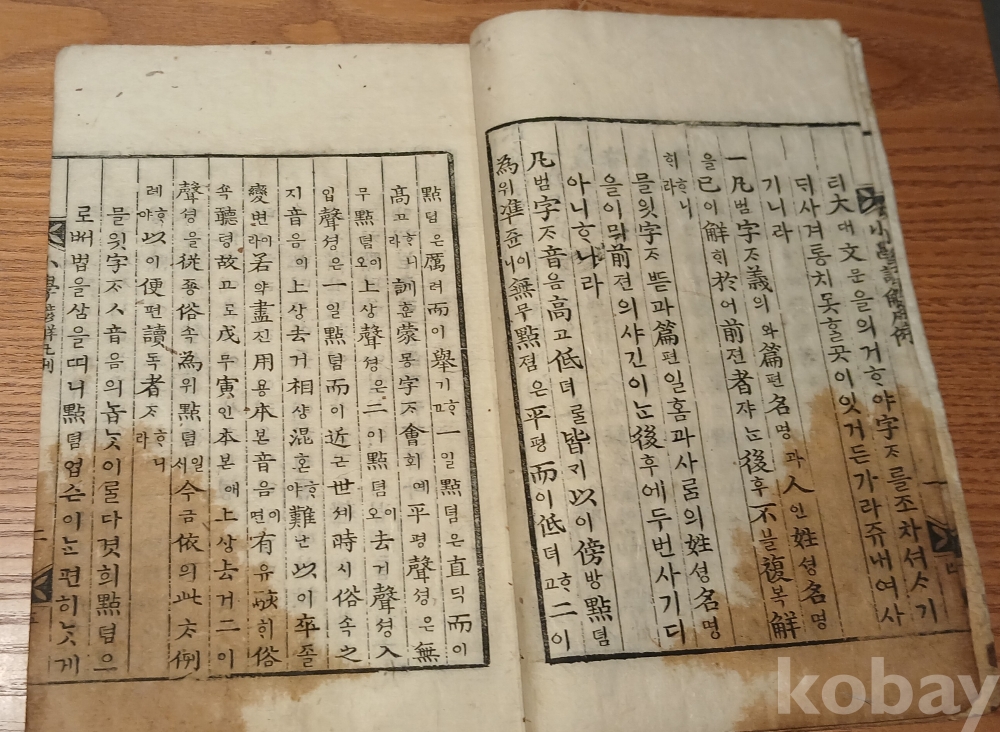 小學諺解凡例
티大대文문을의거ᄒᆞ야字ᄌᆞ를조차셔사기
ᄃᆡ사겨통치못ᄒᆞᆯ곳이잇거든가라쥬내여사
기니라
一凡범字ᄌᆞ義의와篇편名명과人인姓셩名명
을已이解ᄒᆡ於어前젼者쟈ᄂᆞᆫ後후不블復복解
ᄒᆡᄒᆞ니라
믈읫字ᄌᆞ뜻과篇편일홈과사ᄅᆞᆷ의姓셩名명
을이믜前젼의사긴이ᄂᆞᆫ後후에두번사기디
아니ᄒᆞ나라
凡범字ᄌᆞ音음高고低뎌ᄅᆞᆯ皆ᄀᆡ以이傍방點뎜
為위準쥰ᄒᆞ니無무點뎜은平평而이低뎌ᄒᆞ고二이
點뎜은厲려而이擧기ᄒᆞ고一일點뎜은直딕而이
高고ᄒᆞ니라訓훈蒙몽字ᄌᆞ會회예平평聲셩은無
무點뎜이오上상聲셩은二이點뎜이오去거聲셩入
입聲셩은一일點뎜而이近근世셰時시俗속之
지音음이上상去거相샹混혼ᄒᆞ야難난以이卒졸
變변이라若약盡진用용本본音음이면有유駭ᄒᆡ俗
속聽령故고로戊무寅인本본애上상去거二이
聲셩을從죵俗속為위點뎜일ᄉᆡ今금依의此ᄎᆞ例
례ᄒᆞ야以이便편讀독者쟈ᄒᆞ니라
믈읫字ᄌᆞㅅ音음의놉ᄂᆞᆺ이ᄅᆞᆯ다겻희點뎜으
로뻐법을삼을띠니點뎜업슨이ᄂᆞᆫ편히ᄂᆞᆺ게
小學諺解凡例
kobay